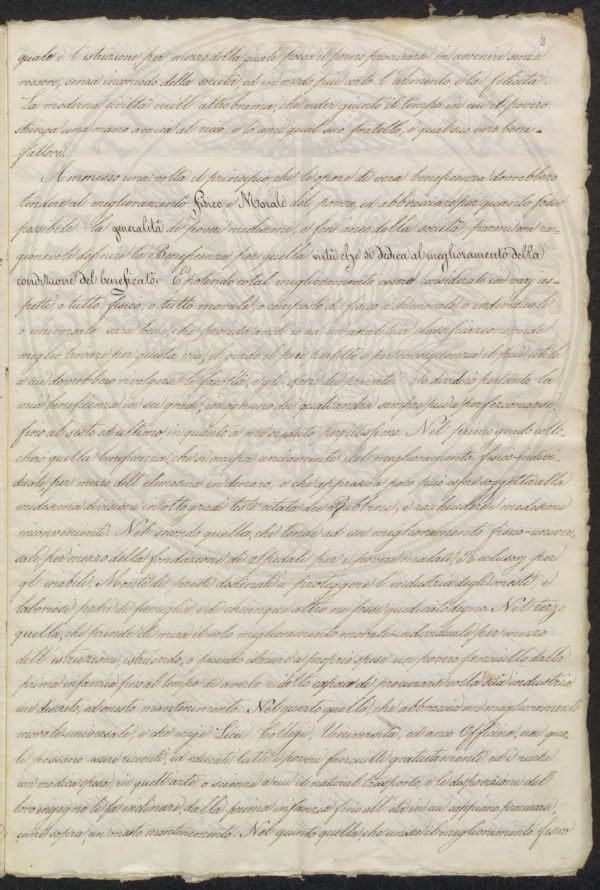 3
quale è l'istruzione per mezzo della quale possa il povero procurarsi in avvenire senza
rossore, senza incomodo della società ed in modo più certo l'alimento, e la felicità.
La moderna civiltà null'altro brama, che veder giunto il tempo in cui il povero
stringa una mano amica al ricco, e lo ami qual suo fratello, e qual suo vero bene=
fattore.
Ammesso una volta il principio, che le opere di vera beneficenza dovrebbero
tendere al miglioramento Fisico e Morale del povero, ed abbracciare per quanto fosse
possibile la generalità de' poveri medesimi, e fors'anco della società parmi con ra=
gionevole definire la Beneficenza per quella virtù che si dedica al miglioramento della
condizione del beneficato. E potendo cotal miglioramento essere considerato in varj as=
petti, o tutto fisico, o tutto morale, o composto di fisico e di morale, o individuale
o universale sarà bene, che proceda anch'io ad un'analitica classificazione onde
meglio trovare per questa via, il grado il più perfetto e per conseguenza il più utile
a cui dovrebbero rivolgersi le facoltà, e gli sforzi de' privati. Io dividerò pertanto la
mia beneficenza in sei gradi, in ognuno dei quali andrà sempre più a perfezionarsi,
fino al sesto ed ultimo, in quanto a me creduto perfettissimo. Nel primo grado collo=
cherò quella beneficenza, che si occupa unicamente del miglioramento fisico-indivi=
duale, per mezzo dell'elemosina in denaro, e che appresso a poco può esser soggetta alla
medesima divisione in otto gradi teste citata dei Rabbini, e racchiudere i medesimi
inconvenienti. Nel secondo quella, che tende ad un miglioramento fisico-univer=
sale, per mezzo della fondazione di Ospedali per i poveri malati, Reclusorj per
gl'inabili, Monti di prestiti destinati a proteggere l'industria degli onesti, e
laboriosi padri di famiglia e di chiunque altro ne fosse giudicato degno. Nel terzo
quella, che prende di mira il solo miglioramento morale-individuale per mezzo
dell'istruzione, istruendo, o facendo istruire a proprie spese un povero fanciullo dalla
prima infanzia fino al tempo di averlo ridotto capace di procurarsi colla sua industria
un discreto, ed onesto mantenimento. Nel quarto quella, che abbraccia un miglioramento
morale-universale, e che erige Licei, Collegj, Università, ed anco Officine, nei qua=
li possano essere ricevuti, ed educati tutti i poveri fanciulli gratuitamente, ed i ricchi
con modica spesa, in quell'arte, o scienza a cui il natural trasporto, e le disposizioni del
loro ingegno li fa inclinare, dalla prima infanzia fino all'età in cui sappiano procurarsi
come sopra, un onesto mantenimento. Nel quinto quella, che unisce il miglioramento fisico